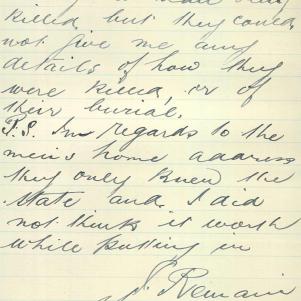 killed but they could
not give me any
details of how they
were killed, or of
their burial.
P.S. In regards to the
men's home address
they only knew the
state and I did
not think it worth
while putting in
I Remain